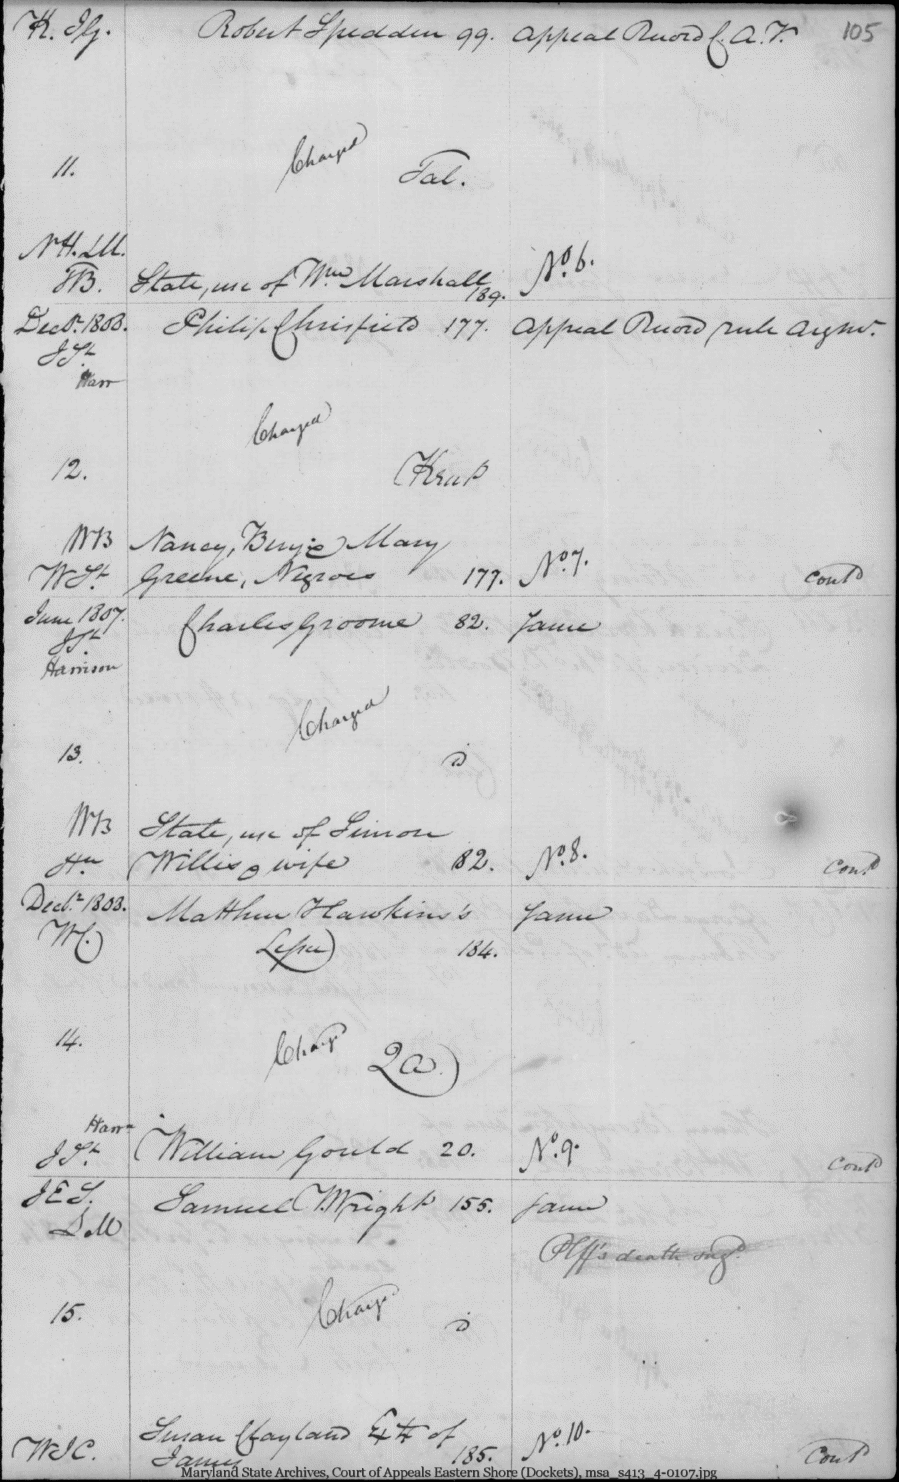 K. Jg. Robert Spedden 99. Appeal Record C. A. V. 105
Charged
11. Tal.
N H. LM.
JB. State, use of Wm Marshall 189. No. 6.
Decr. 1808. Philip Chrisfield 177. Appeal Record rule argmt.
J St.
Harr
Charged
12. Kent
WB Nancy, Benj & Mary
W St. Greene, Negroes 177. No. 7. Contd
June 1807. Charles Groome 82. Same
J St.
Harrison
Charged
13. d
WB State, use of Simon
Hn. Willis & wife 82. No. 8. Contd
Decr. 1808. Matthew Hawkins's Same
WC. Lessee 184.
14. Charg Q A.
Harrn
J St. William Gould 20. No. 9. Contd
J E S. Samuel T. Wright 155. Same
L M
Plff's death sugd.
Charge
15. d
Susan Clayland of
W J C. James 185. No. 10. Contd
Maryland State Archives, Court of Appeals Eastern Shore (Dockets), msa_s413_4-0107.jpg